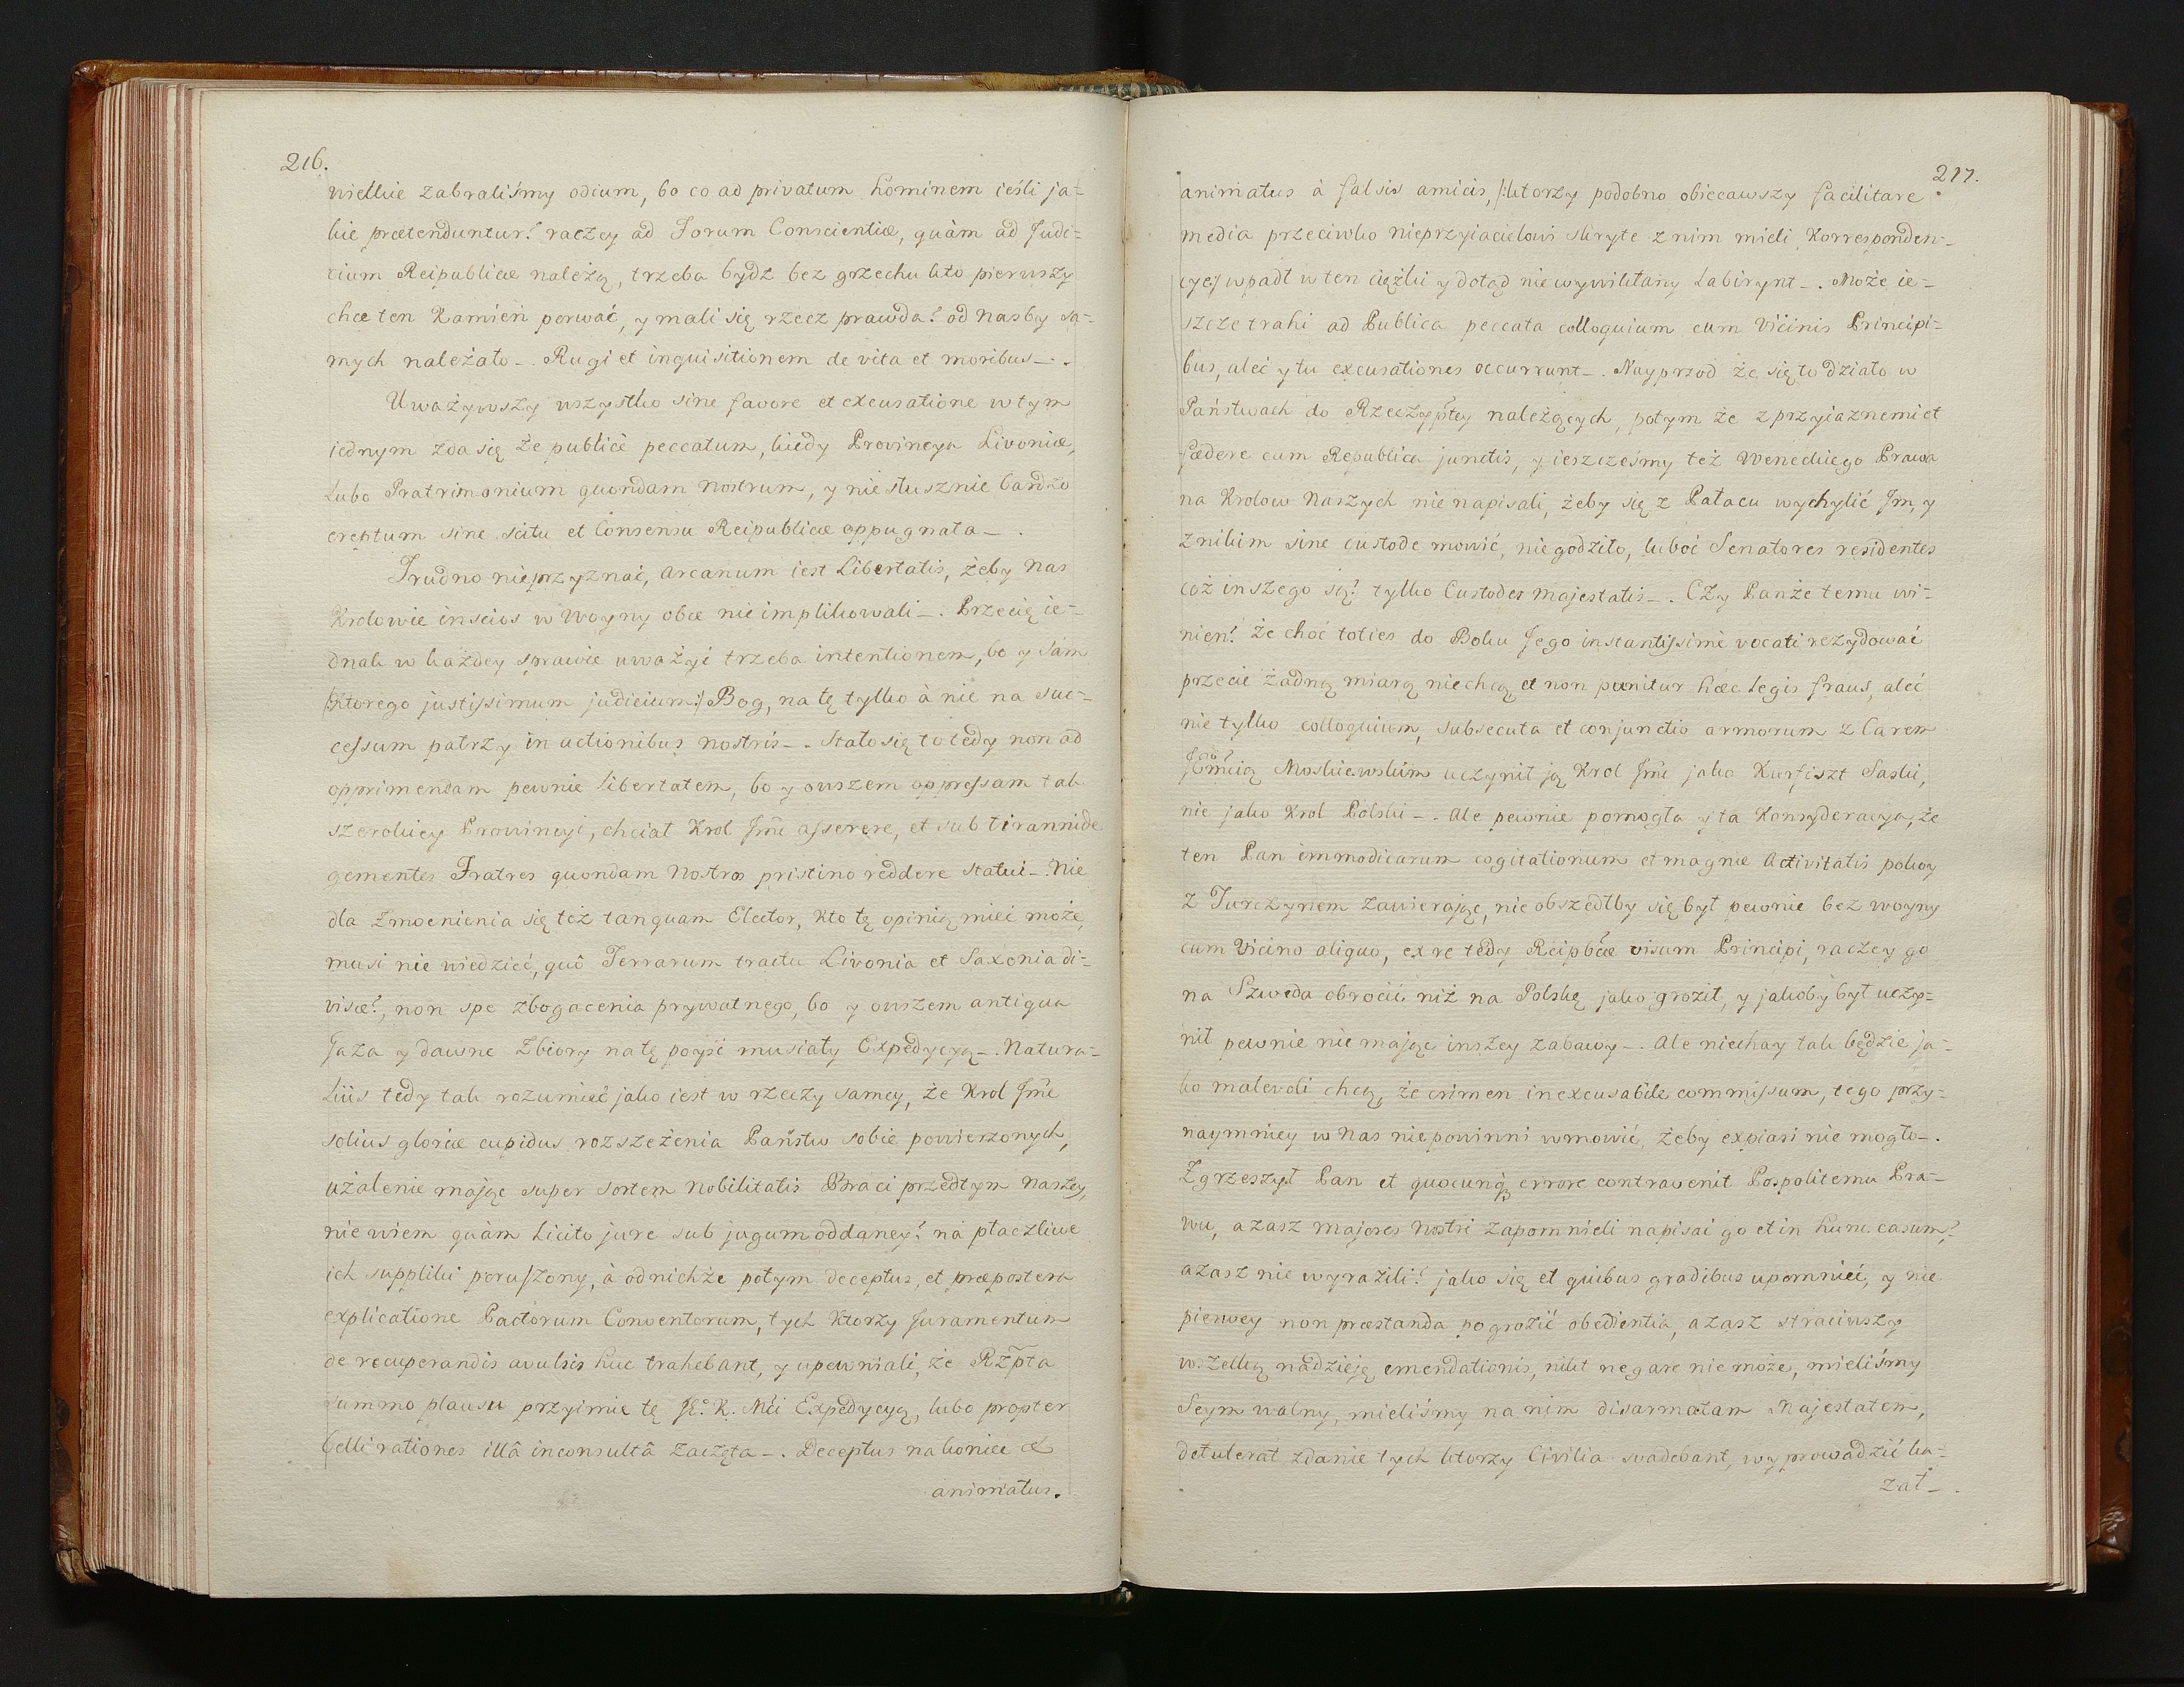 216.
wielkie zabraliśmy odium, bo co ad privatum hominem ieśli ja=
kie prætenduntur? raczey ad Forum Conscientiæ, quàm ad Judi=
cium Reipublicæ należą, trzeba bydz bez grzechu kto pierwszy
chce ten Kamień porwać, y mali się rzecz prawda? od nas by sa=
mych należało_. Rugi et inquisitionem de vita et moribus_.
Uważywszy wszystko sine favore et excusatione w tym
iednym zda się że publicè peccatum, kiedy Prowincya Livoniæ,
Lubo Pratrimonium quondam nostrum, y nie słusznie bardzo
ereptum sine scitu et Consensu Reipublicæ oppugnata_.
Trudno nieprzyznać, Arcanum iest Libertatis, żeby nas
Krolowie inscios w Woyny obce nie implikowali_. Przecię ie=
dnak w każdey sprawie uważyć trzeba intentionem, bo y sam
/:ktorego justissimum judicium:/ Bog, na tę tylko à nie na suc=
cessum patrzy in actionibus nostris_. Stało się to tedy non ad
opprimendam pewnie libertatem, bo y owszem oppressam tak
szerokiey Prowincyi, chciał Krol Jmć asserere, et sub tirannide
gementes Fratres quondam Nostros pristino reddere statui_. Nie
dla zmocnienia się też tanquam Elector, kto tę opinią mieć może,
musi nie wiedzieć, quô Terrarum tractu Livonia et Saxonia di=
visæ?, non spe zbogacenia prywatnego, bo y owszem antiqua
Gaza y dawne Zbiory na tę poyść musiały Expedycyą_. Natura=
liùs tedy tak rozumieć jako iest w rzeczy samey, że Krol Jmć
solius gloriæ cupidus rozszeżenia Państw sobie powierzonych,
użalenie mając super sortem Nobilitatis Braci przedtym naszey,
nie wiem quàm licito jure sub jugum oddaney? na płaczliwe
ich suppliki poruszony, à od nichże potym deceptus, et præpostera
explicatione Pactorum Conventorum, tych ktorzy Juramentum
de recuperandis avulsis huc trahebant, y upewniali, że Rzpta
summo plausu przyimie tę JK. Mći Expedycyą, lubo propter
belli rationes illâ inconsultâ zaczęta_. Deceptus nakoniec et
animatus.
217.
animatus à falsis amicis, /:ktorzy podobno obiecawszy facilitare
media przeciwko nieprzyiacielowi skryte z nim mieli Korresponden=
cye:/ wpadł w ten ciężki y dotąd niewywikłany Labirynt_. Może ie=
szcze trahi ad Publica peccata colloquium cum Vicinis Principi=
bus, aleć y tu excusationes occurrunt_. Nayprzod że się to działo w
Państwach do Rzeczyptey należących, potym że z przyiaznemi et
fœdere cum Republica junctis, y ieszcześmy też Weneckiego Prawa
na Krolow Naszych nie napisali, żeby się z Pałacu wychylić Jm, y
z nikim sine custode mowić, niegodziło, luboć Senatores residentes
coż inszego są? tylko Custodes Majestatis_. Czy Panże temu wi=
nien? że choć toties do Boku Jego instantissimè vocati rezydować
przecie żadną miarą niechcą et non punitur hæc legis fraus, aleć
nie tylko colloquium, subsecuta et conjunctio armorum z Carem
Jmcią Moskiewskim uczynił ją Krol Jmć jako Kurfiszt Saski,
nie jako Krol Polski_. Ale pewnie pomogła y ta Konsyderacya, że
ten Pan immodicarum cogitationum et magnæ Activitatis pokoy
z Turczynem zawierając, nie obszedłby się był pewnie bez woyny
cum Vicino aliquo, ex re tedy Reipbcæ visum Principi, raczey go
na Szweda obrocić niż na Polskę jako groził, y jakoby był uczy=
nił pewnie nie mając inszey zabawy_. Ale niechay tak będzie ja=
ko malevoli chcą, że crimen inexcusabile commissum, tego przy=
naymniey w nas nie powinni wmowić, żeby expiari nie mogło_.
Zgrzeszył Pan et quocunq errore contravenit Pospolitemu Pra=
wu, azasz majores Nostri zapomnieli napisać go et in hunc casum?
azasz nie wyrazili? jako się et quibus gradibus upomnieć, y nie
pierwey non præstanda pogrozić obedientia, azasz straciwszy
wszelką nadzieję emendationis, nikt negare nie może, mieliśmy
Seym walny, mieliśmy na nim disarmatam Majestatem,
detulerat zdanie tych ktorzy Civilia svadebant, wyprowadzić ka=
zał_.